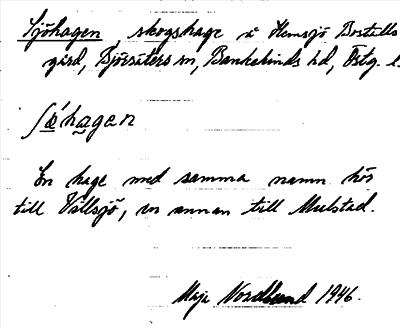 Sjöhagen, skogshage i Hemsjö Boställs
gård, Björsäters sn, Bankekinds hd, Östg. l
hagen
En hage med samma namn hör
till Vällsjö, en annan till Mulstad.
Maja Nordlund 1946.